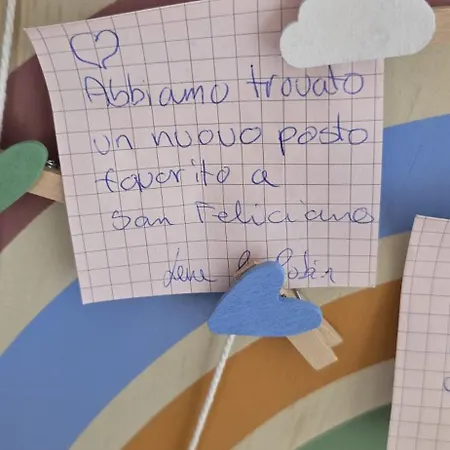 Abbiamo trovato
un nuovo posto
favorito a
San Feliciano
Lene & Robin